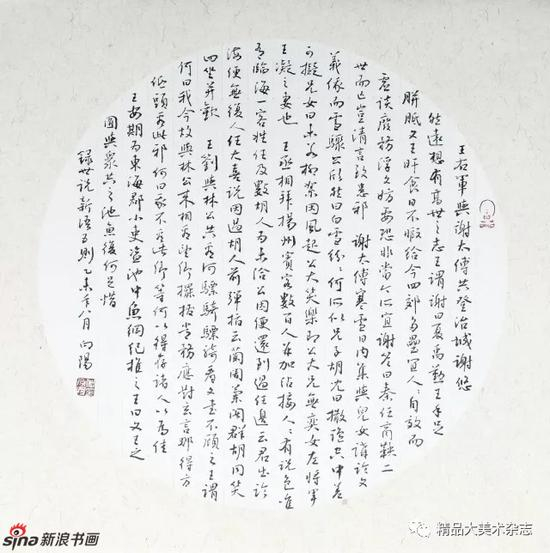 王右軍與謝太傅共登冶城謝悠
然遠想有高世之志王謂謝曰夏禹勤王手足
胼胝文王旰食日不暇給今四郊多壘宜人〻自效而
虛談廢務浮文妨要恐非當今所宜謝答曰秦任商鞅二
世而亡豈清言致患邪 謝太傅寒雪日內集與兒女講論文
義俄而雪驟公欣然曰白雪紛〻何所似兄子胡兒曰撒鹽空中差
可擬兄女曰未若柳絮因風起公大笑樂即公大兄無奕女左將軍
王凝之妻也 王丞相拜揚州賓客數百人並加沾接人〻有說色唯
有臨海一客姓任及數胡人為未洽公因便還到過任邊云君出臨
海便無復人任大喜說因過胡人前彈指云蘭闍蘭闍群胡同笑
四坐並歡 王劉與林公共看何驃騎驃騎看文書不顧之王謂
何曰我今故與林公來相看望卿擺撥常務應對玄言那得方
低頭看此邪何曰我不看此卿等何以得存諸人以為佳
王安期為東海郡小吏盜池中魚綱紀推之王曰文王之
囿與眾共之池魚復何足惜
錄世說新語五則乙未年八月 向陽
sina新浪书画
精品大美术杂志